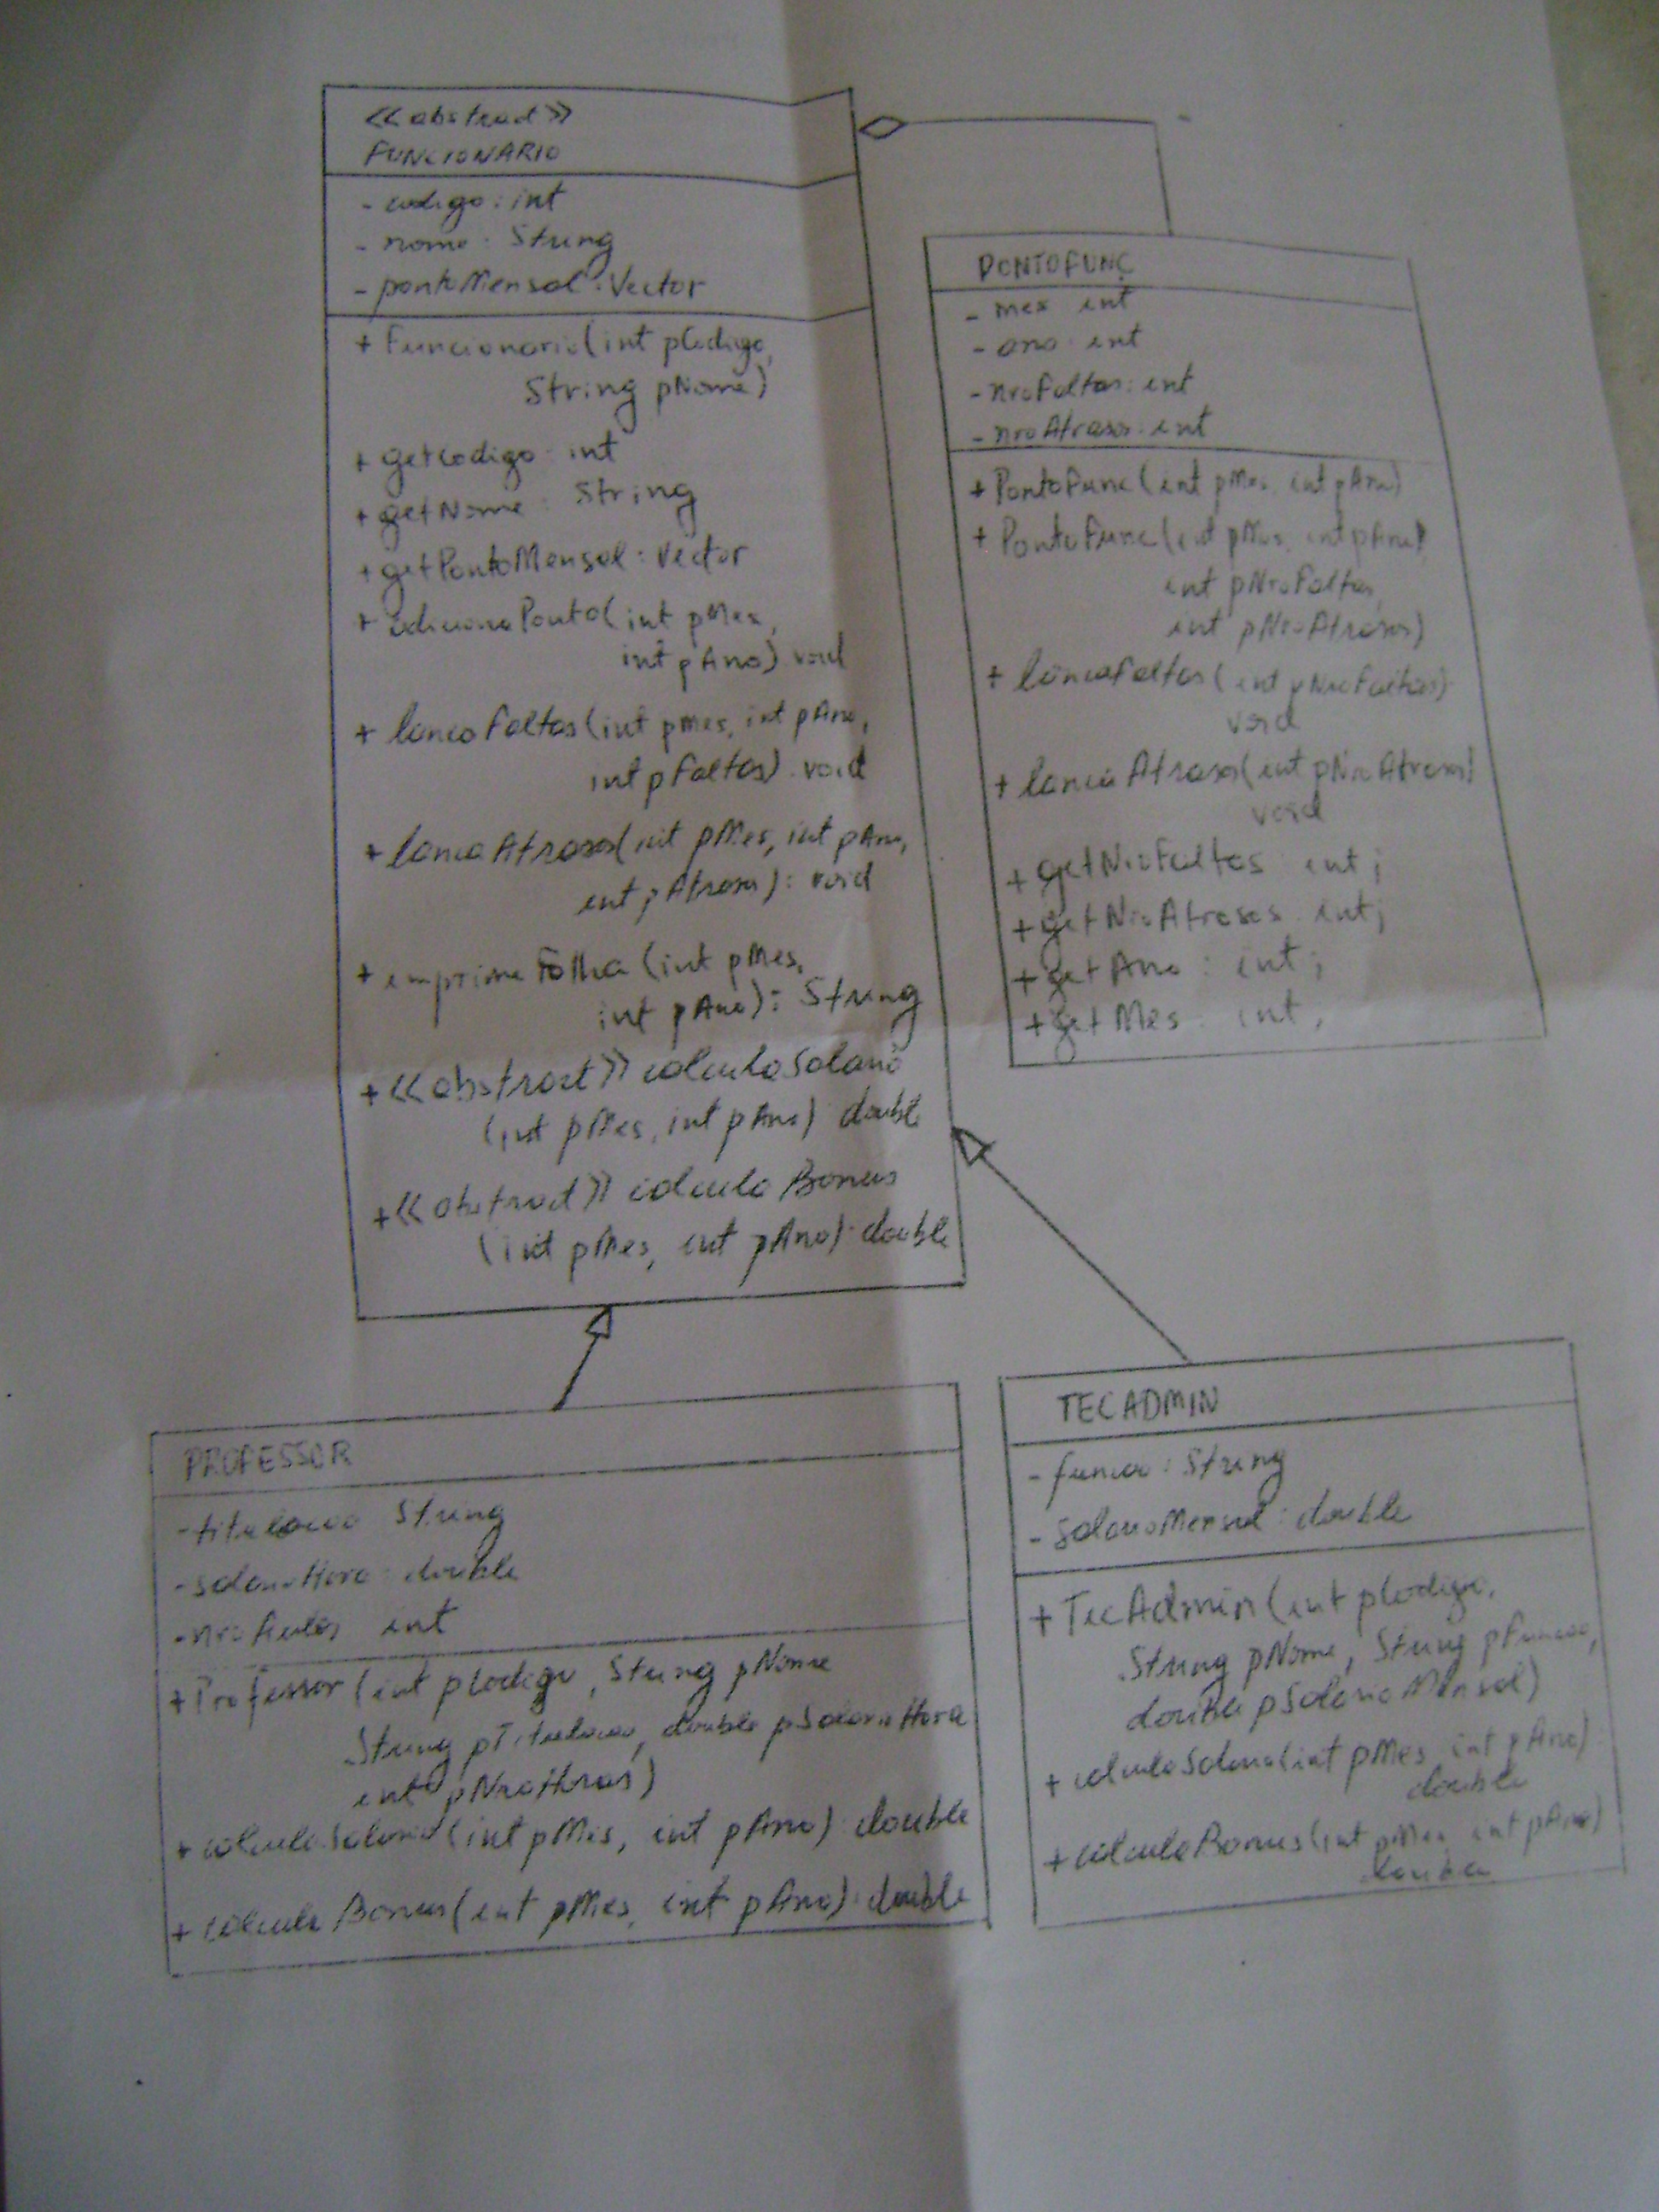 <<abstract>>
FUNCIONARIO
- codigo: int
- nome: String
- pontoMensal: Vector
+ Funcionario(int pCodigo,
String pNome)
+ getCodigo: int
+ getNome: String
+ getPontoMensal: Vector
+ adicionaPonto(int pMes,
int pAno) void
+ lancaFaltas(int pMes, int pAno,
int pFaltas). void
+ lancaAtrasos(int pMes, int pAno,
int pAtrasos): void
+ imprimeFolha (int pMes,
int pAno): String
+ <<abstract>> calculaSalario
(int pMes, int pAno) double
+ <<abstract>> calculaBonus
(int pMes, int pAno): double
PONTOFUNC
- mes int
- ano: int
- nroFaltas: int
- nroAtrasos: int
+ PontoFunc(int pMes, int pAno)
+ PontoFunc(int pMes, int pAno,
int pNroFaltas,
int pNroAtrasos)
+ lancaFaltas(int pNroFaltas):
void
+ lancaAtrasos(int pNroAtrasos)
void
+ getNroFaltas int;
+ getNroAtrasos: int;
+ getAno: int;
+ getMes: int;
PROFESSOR
- titulacao String
- salarioHora: double
- nroAulas int
+ Professor(int pCodigo, String pNome
String pTitulacao, double pSalarioHora
int pNroHoras)
+ calculaSalario(int pMes, int pAno): double
+ calculaBonus(int pMes, int pAno): double
TECADMIN
- funcao: String
- salarioMensal: double
+ TecAdmin(int pCodigo,
String pNome, String pFuncao,
double pSalarioMensal)
+ calculaSalario(int pMes, int pAno)
double
+ calculaBonus(int pMes, int pAno)
double